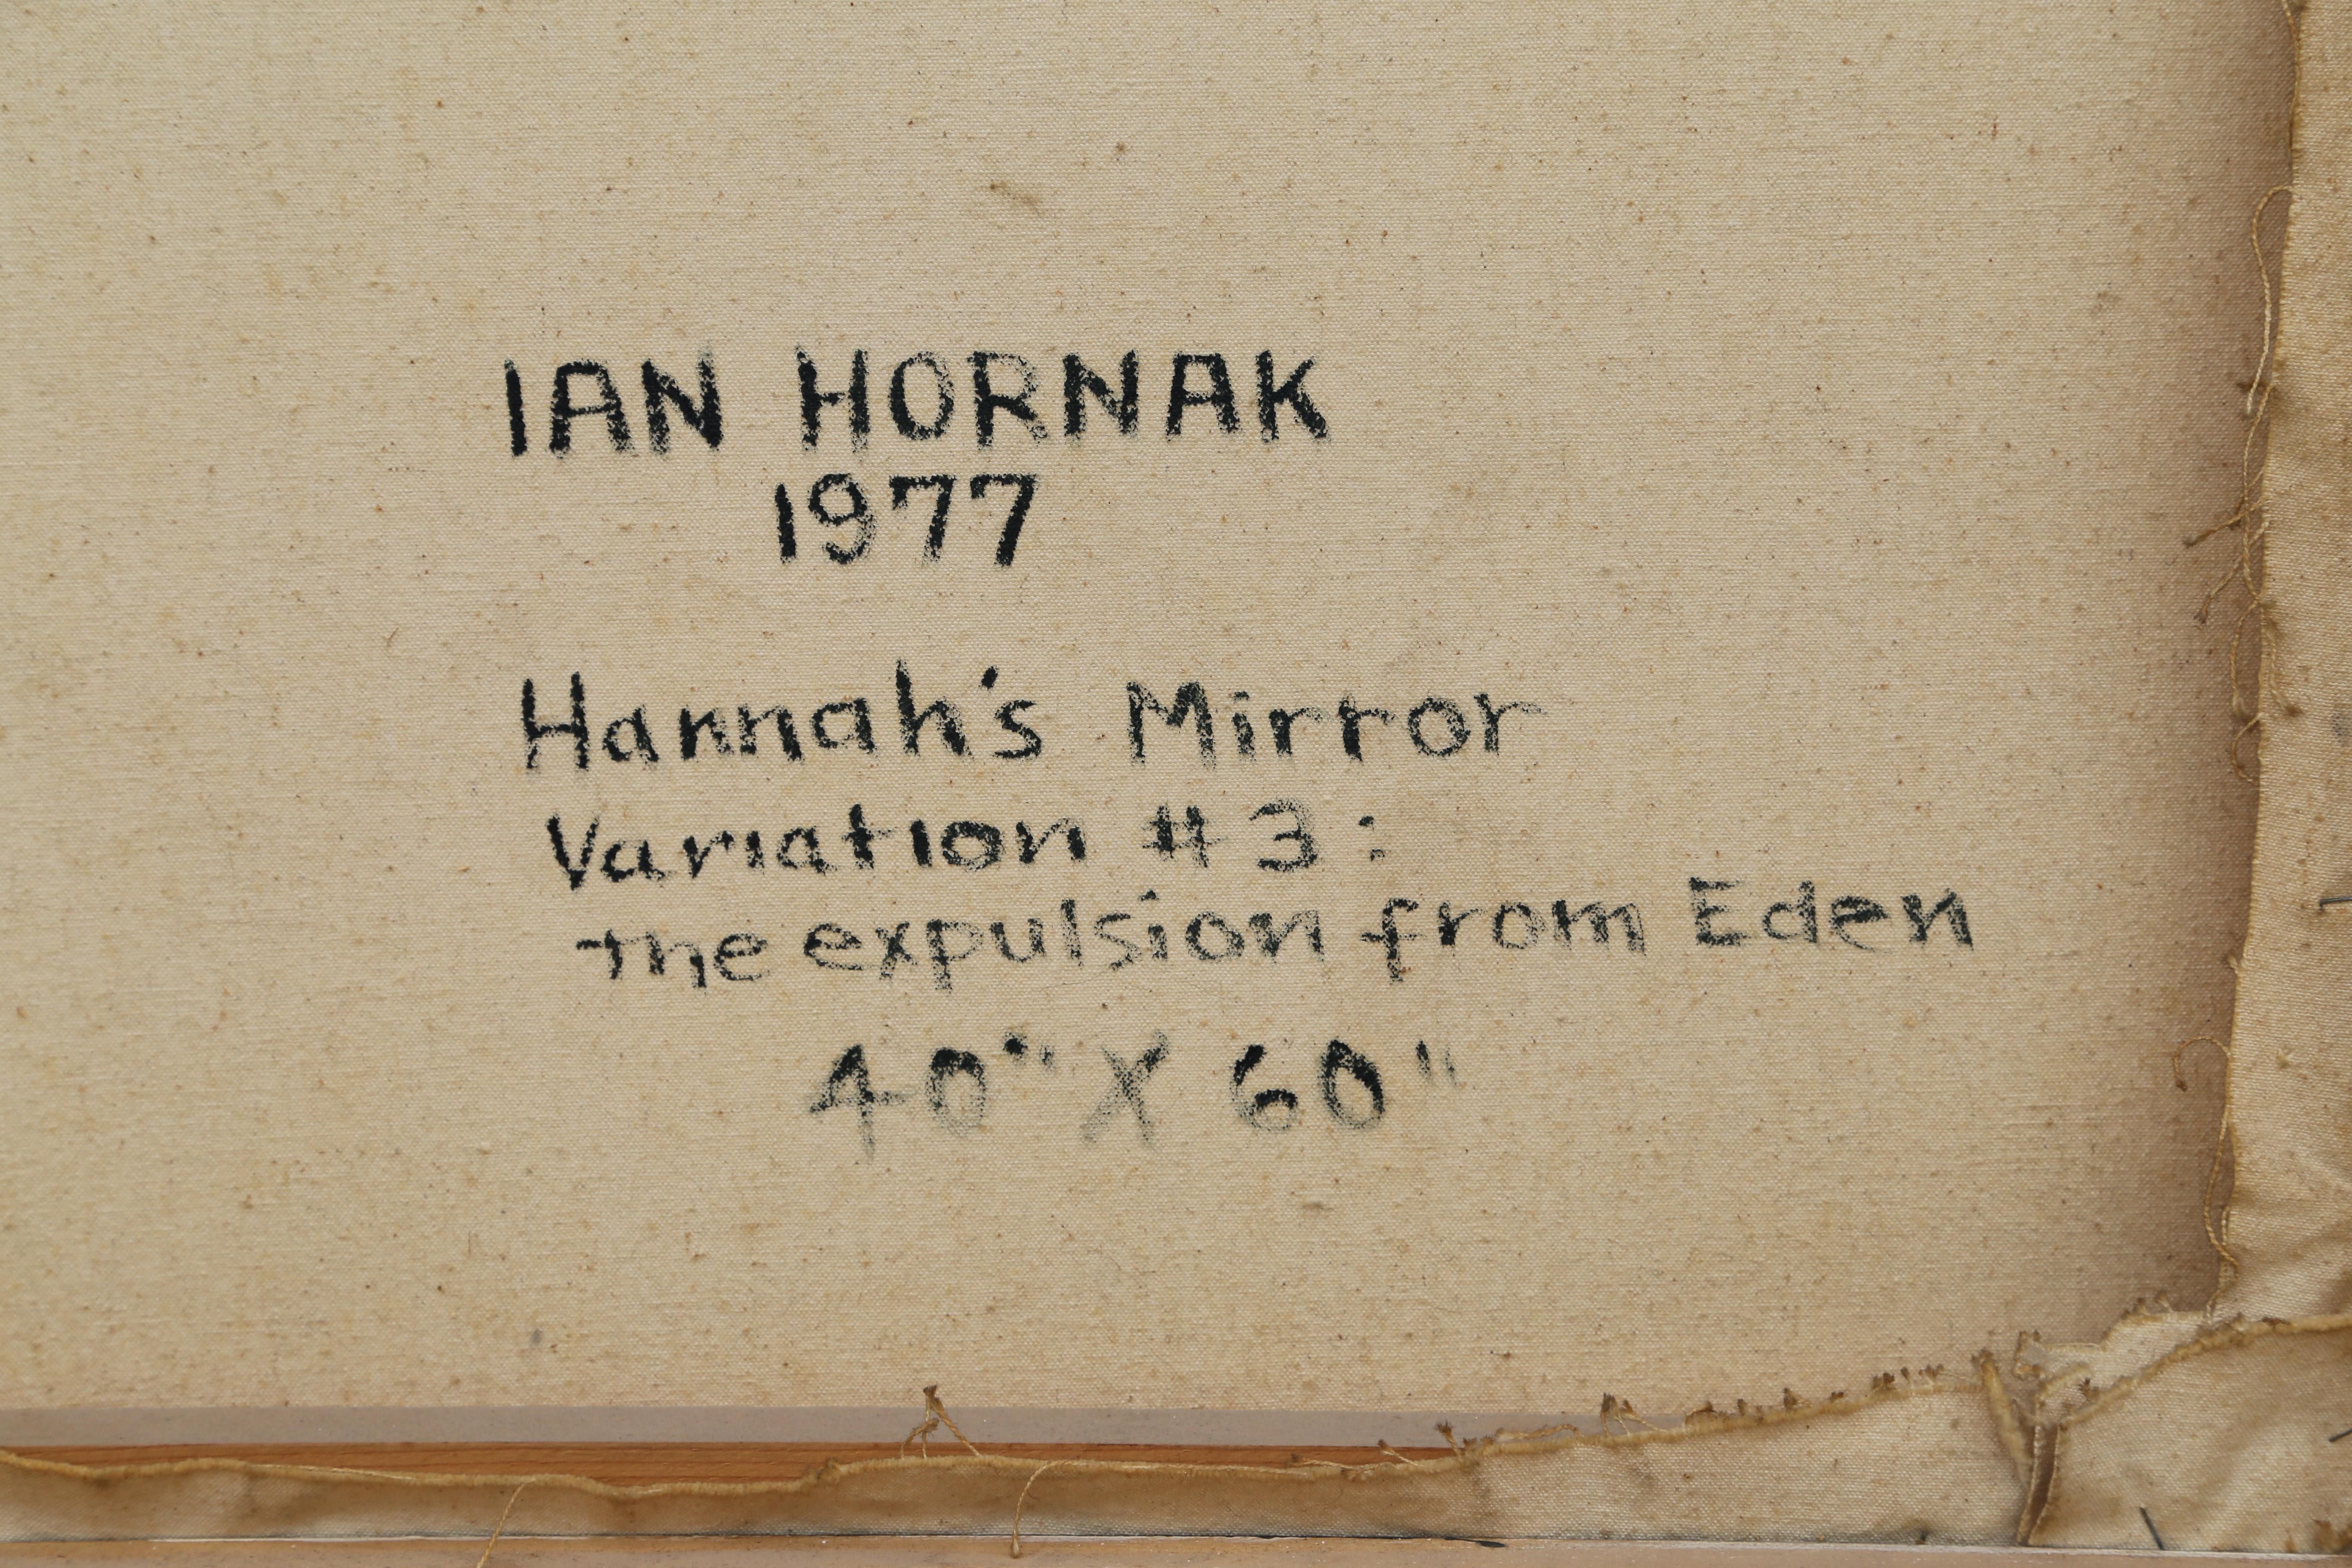 IAN HORNAK
1977
Hannah's Mirror
Variation #3:
the expulsion from Eden
40" X 60"